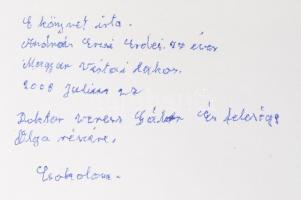 E könyvet irta.
András Erzsi Erdei 77 éves
Magyar Vistai lakos.
2008 Julius 27
Doktor Veress Gábor És felesége
Olga részére,